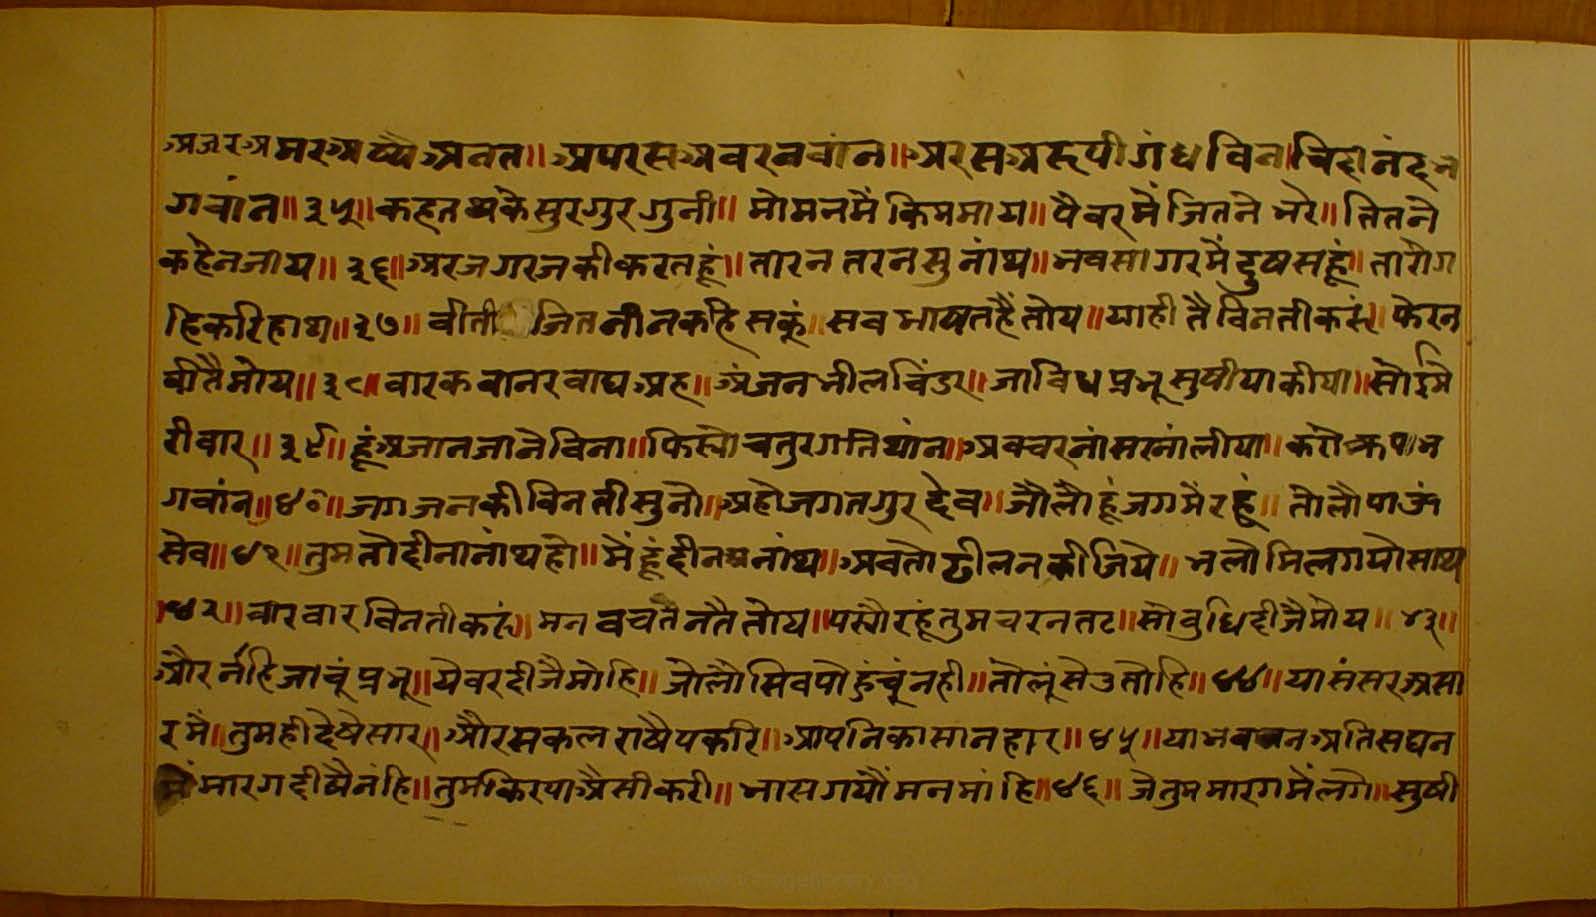 अजरअमरअष्यैअनत॥ अपरसअवरनवांन॥ अरसअरूपीगंधविन॥ चिदानंदभ
गवांन॥ ३५॥ कहतथकेसुरगुरगुनी॥ मोमनमैंकिममाय॥ पैवरमैंजितनेभरे॥ तितने
कहेनजाय॥ ३६॥ अरजगरजकीकरतहूं॥ तारनतरनसुनांथ॥ भवसागरमैंदुषसहूं॥ तारौग
हिकरिहाथ॥ ३७॥ वीती जितनीनकहिसकूं॥ सवभाषतहैंतोय॥ याहीतैविनतीकरूं॥ फेरन
वीतैमोय॥ ३८॥ वारकवानरवाघअह॥ अंजनभीलचिंडार॥ जाविधप्रभूसुषीयाकीया॥ सोईमे
रीवार॥ ३९॥ हूंअजानजानेविना॥ फिस्योचतुरगतिथांन॥ अवचरनांसरनांलीया॥ करोक्रपाभ
गवांन॥ ४०॥ जगजनकीविनतीसुनो॥ अहोजगतगुरदेव॥ जौलौहूंजगमैरहूं॥ तोलौपाऊं
सेव॥ ४१॥ तुमतोदीनानांथहो॥ मैंहूंदीनअनांथ॥ अवतोढीलनकीजिये॥ भलोमिलगयोसाथ
॥ ४२॥ वारवारविनतीकरूं॥ मनवचतनतैतोय॥ पस्यौरहूंतुमचरनतट॥ सोवुधिदीजैमोय॥ ४३॥
औरनंहिजाचूंप्रभू॥ येवरदीजैमोहि॥ जोलौसिवपोहुंचूंनही॥ तोलूंसेउतोहि॥ ४४॥ यासंसरअसा
रमैं॥ तुमहीदेषेसार॥ औरसकलराषैपकरि॥ आपनिकासानहार॥ ४५॥ याभववनअतिसघन
मैंमारगदीषैनंहि॥ तुमकिरपाऐसीकरी॥ भासगयौंमनमांहि॥ ४६॥ जेतुममारगमैंलगे॥ सुषी